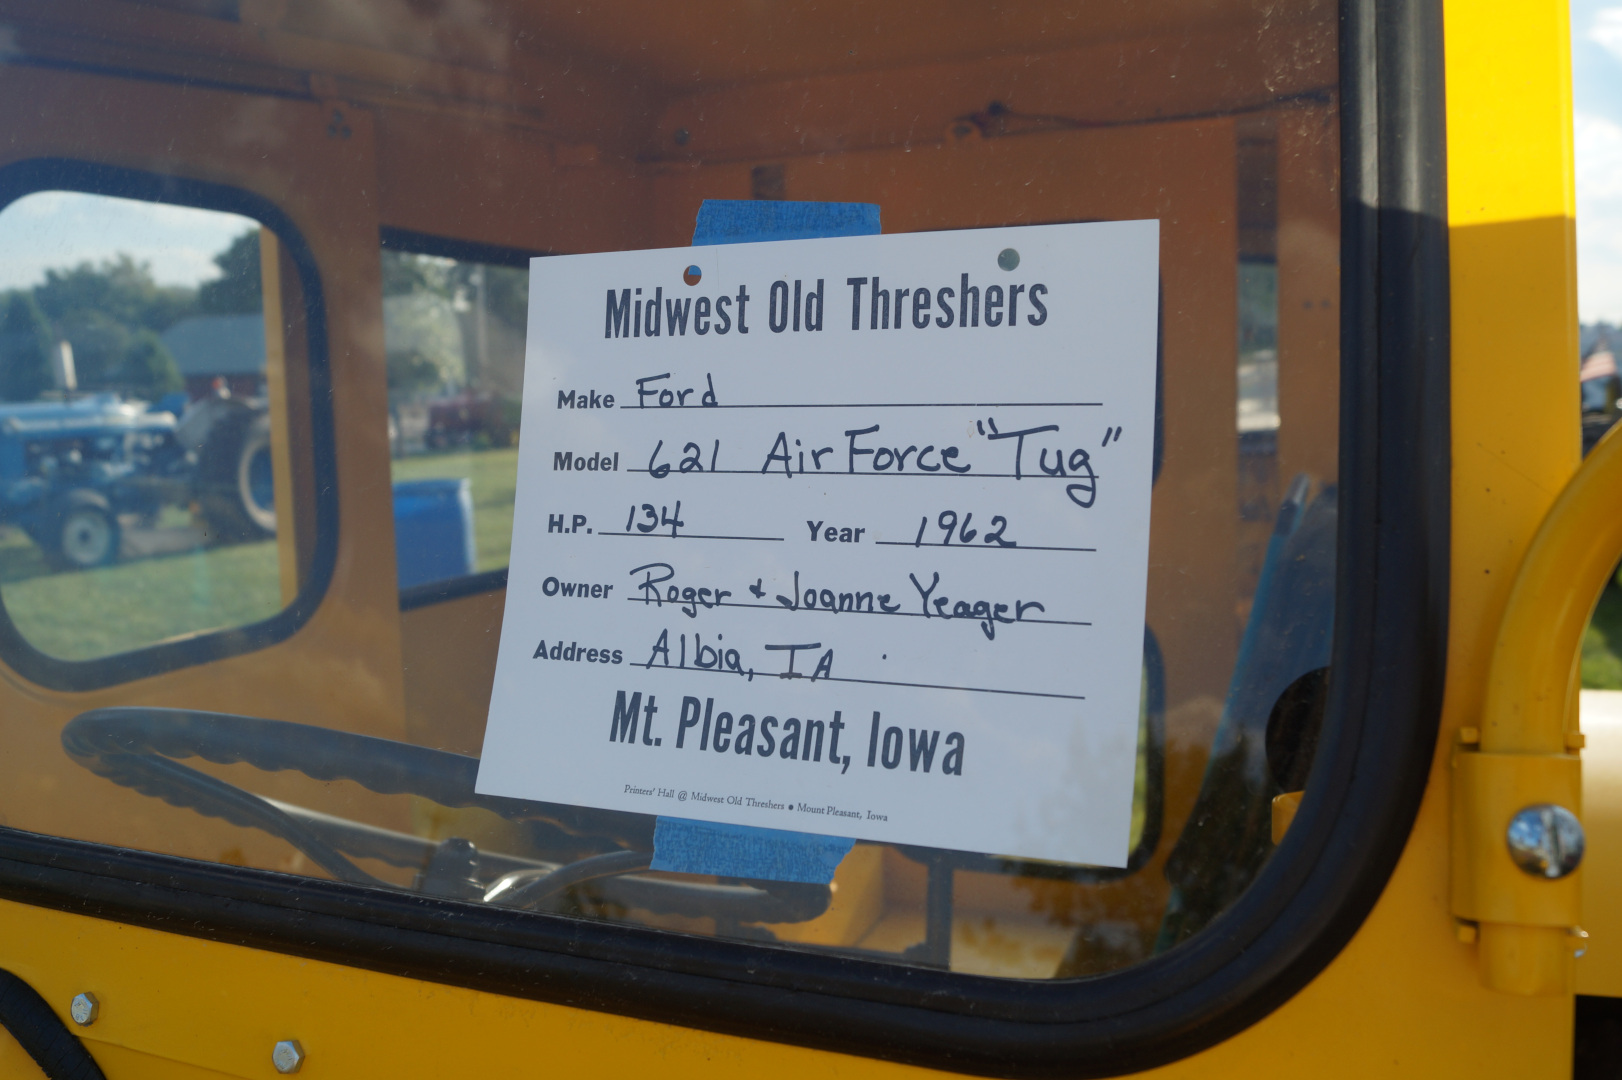 Midwest Old Threshers
Make Ford
Model 621 Air Force "Tug"
H.P. 134 Year 1962
Owner Roger + Joanne Yeager
Address Albia, IA
Mt. Pleasant, Iowa
Printers' Hall @ Midwest Old Threshers ● Mount Pleasant, Iowa